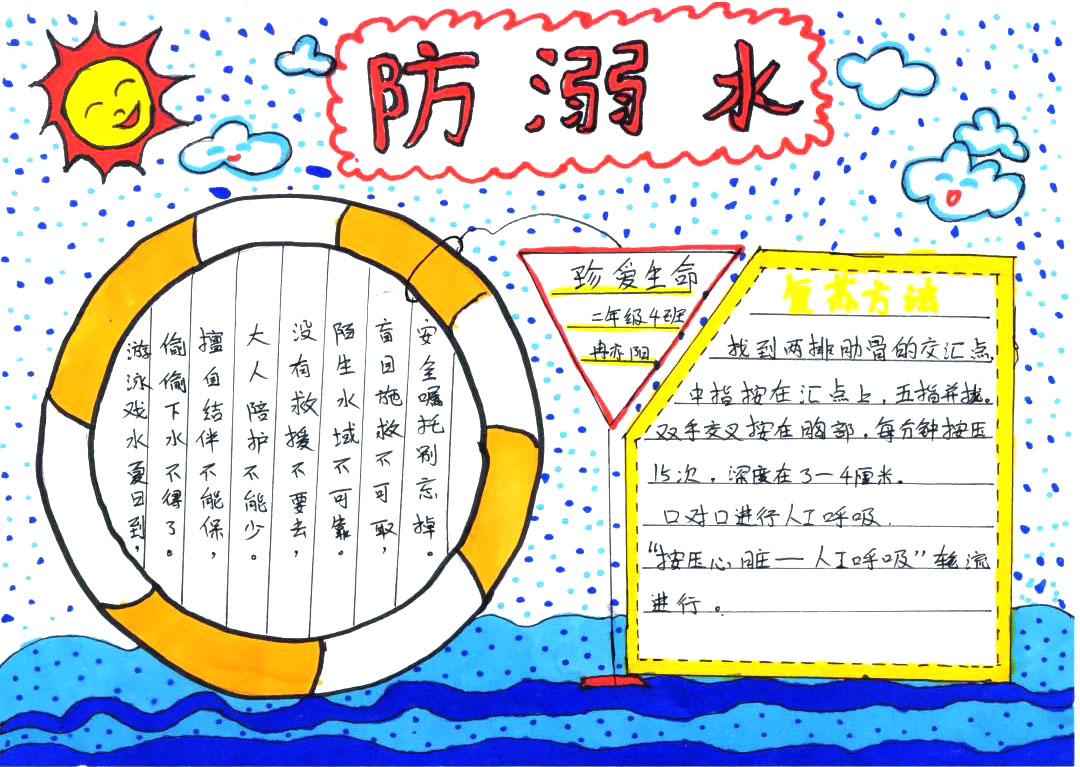 防溺水
游泳戏水夏日到，
偷偷下水不得了。
擅自结伴不能保，
大人陪护不能少。
没有救援不要去，
陌生水域不可靠。
盲目施救不可取，
安全嘱托别忘掉。
珍爱生命
二年级4班
冉亦阳
复苏方法
找到两排肋骨的交汇点，
中指按在汇点上，五指并拢。
双手交叉按在胸部，每分钟按压
15次，深度在3—4厘米。
口对口进行人工呼吸.
“按压心脏—人工呼吸”轮流
进行。